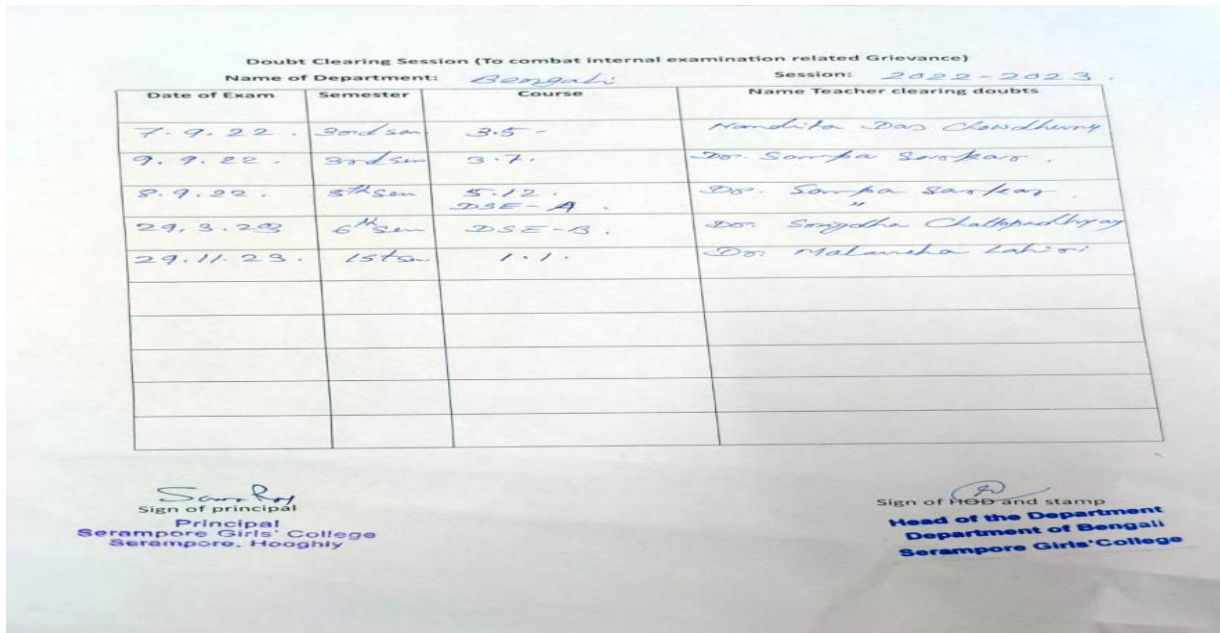 Doubt Clearing Session (To combat internal examination related Grievance)
Name of Department: Bengali Session: 2022-2023.
Date of Exam Semester Course Name Teacher clearing doubts
7.9.22. 3rd sem 3.5- Nandita Das Chowdhury
9.9.22. 3rd sem 3.7. Dr. Sampa Sarkar.
8.9.22. 5th sem 5.12. Dr. Sampa Sarkar.
DSE-A. "
29.3.23 6th sem DSE-B. Dr. Snigdha Chattopadhyay
29.11.23. 1st 1.1. Dr. Malancha Lahiri
Sign of principal
Principal
Serampore Girls' College
Serampore, Hooghly
Sign of HOD and stamp
Head of the Department
Department of Bengali
Serampore Girls'College